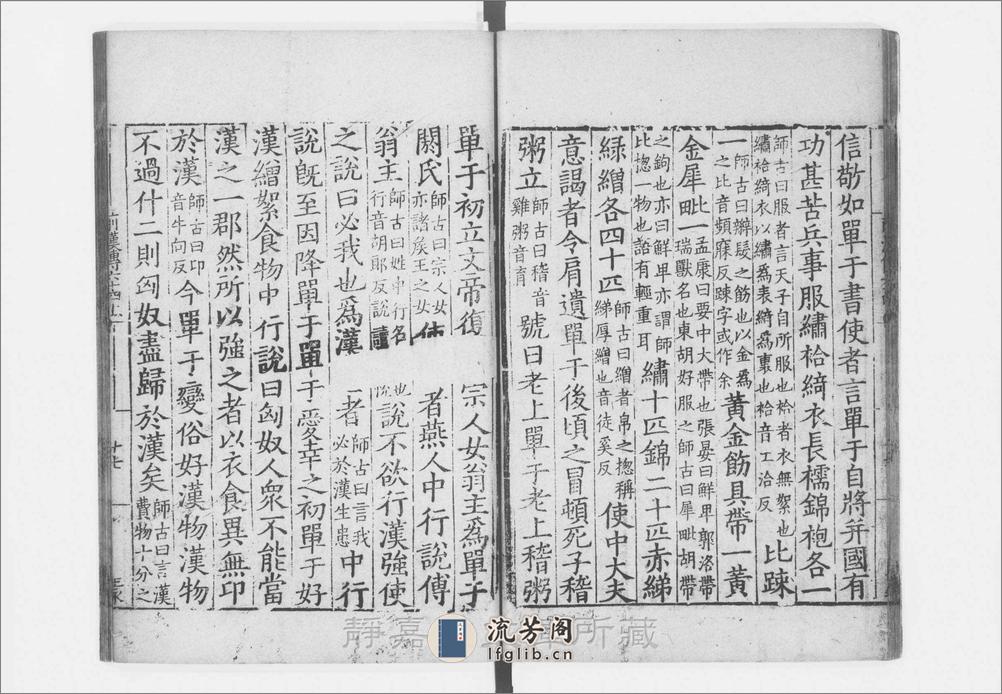 信敬如單于書使者言單于自將并國有
功甚苦兵事服繡袷綺衣長襦錦袍各一
師古曰服者言天子自所服也袷者衣無絮也
繡袷綺衣以繡爲表綺爲裏也袷音工洽反
比踈
一師古曰辮髮之飾也以金爲
之比音頻寐反踈字或作余
黃金飭具帶一黃
金犀毗一
孟康曰要中大帶也張晏曰鮮卑郭洛帶
瑞獸名也東胡好服之師古曰犀毗胡帶
之鉤也亦曰鮮卑亦謂師
比揔一物也語有輕重耳
繡十匹錦二十匹赤綈
綠繒各四十匹
師古曰繒者帛之揔稱
綈厚繒也音徒奚反
使中大夫
意謁者令肩遺單于後頃之冒頓死子稽
粥立
師古曰稽音
雞粥音育
號曰老上單于老上稽粥
單于初立文帝復
宗人女翁主爲單于
閼氏
師古曰宗人女
亦諸侯王之女
使
者燕人中行說傅
翁主
師古曰姓中行名
行音胡郎反說讀
也
說不欲行漢強使
之說曰必我也爲漢
一者
師古曰言我
必於漢生患
中行
說旣至因降單于單于愛幸之初單于好
漢繒絮食物中行說曰匈奴人衆不能當
漢之一郡然所以強之者以衣食異無卬
於漢
師古曰卬
音牛向反
今單于變俗好漢物漢物
不過什二則匈奴盡歸於漢矣
師古曰言漢
費物十分之
十七
靜嘉
所藏
流芳阁
lfglib.cn